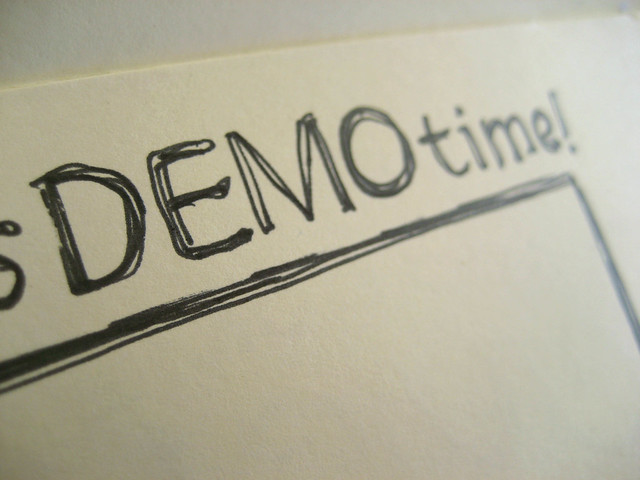 s DEMO time!